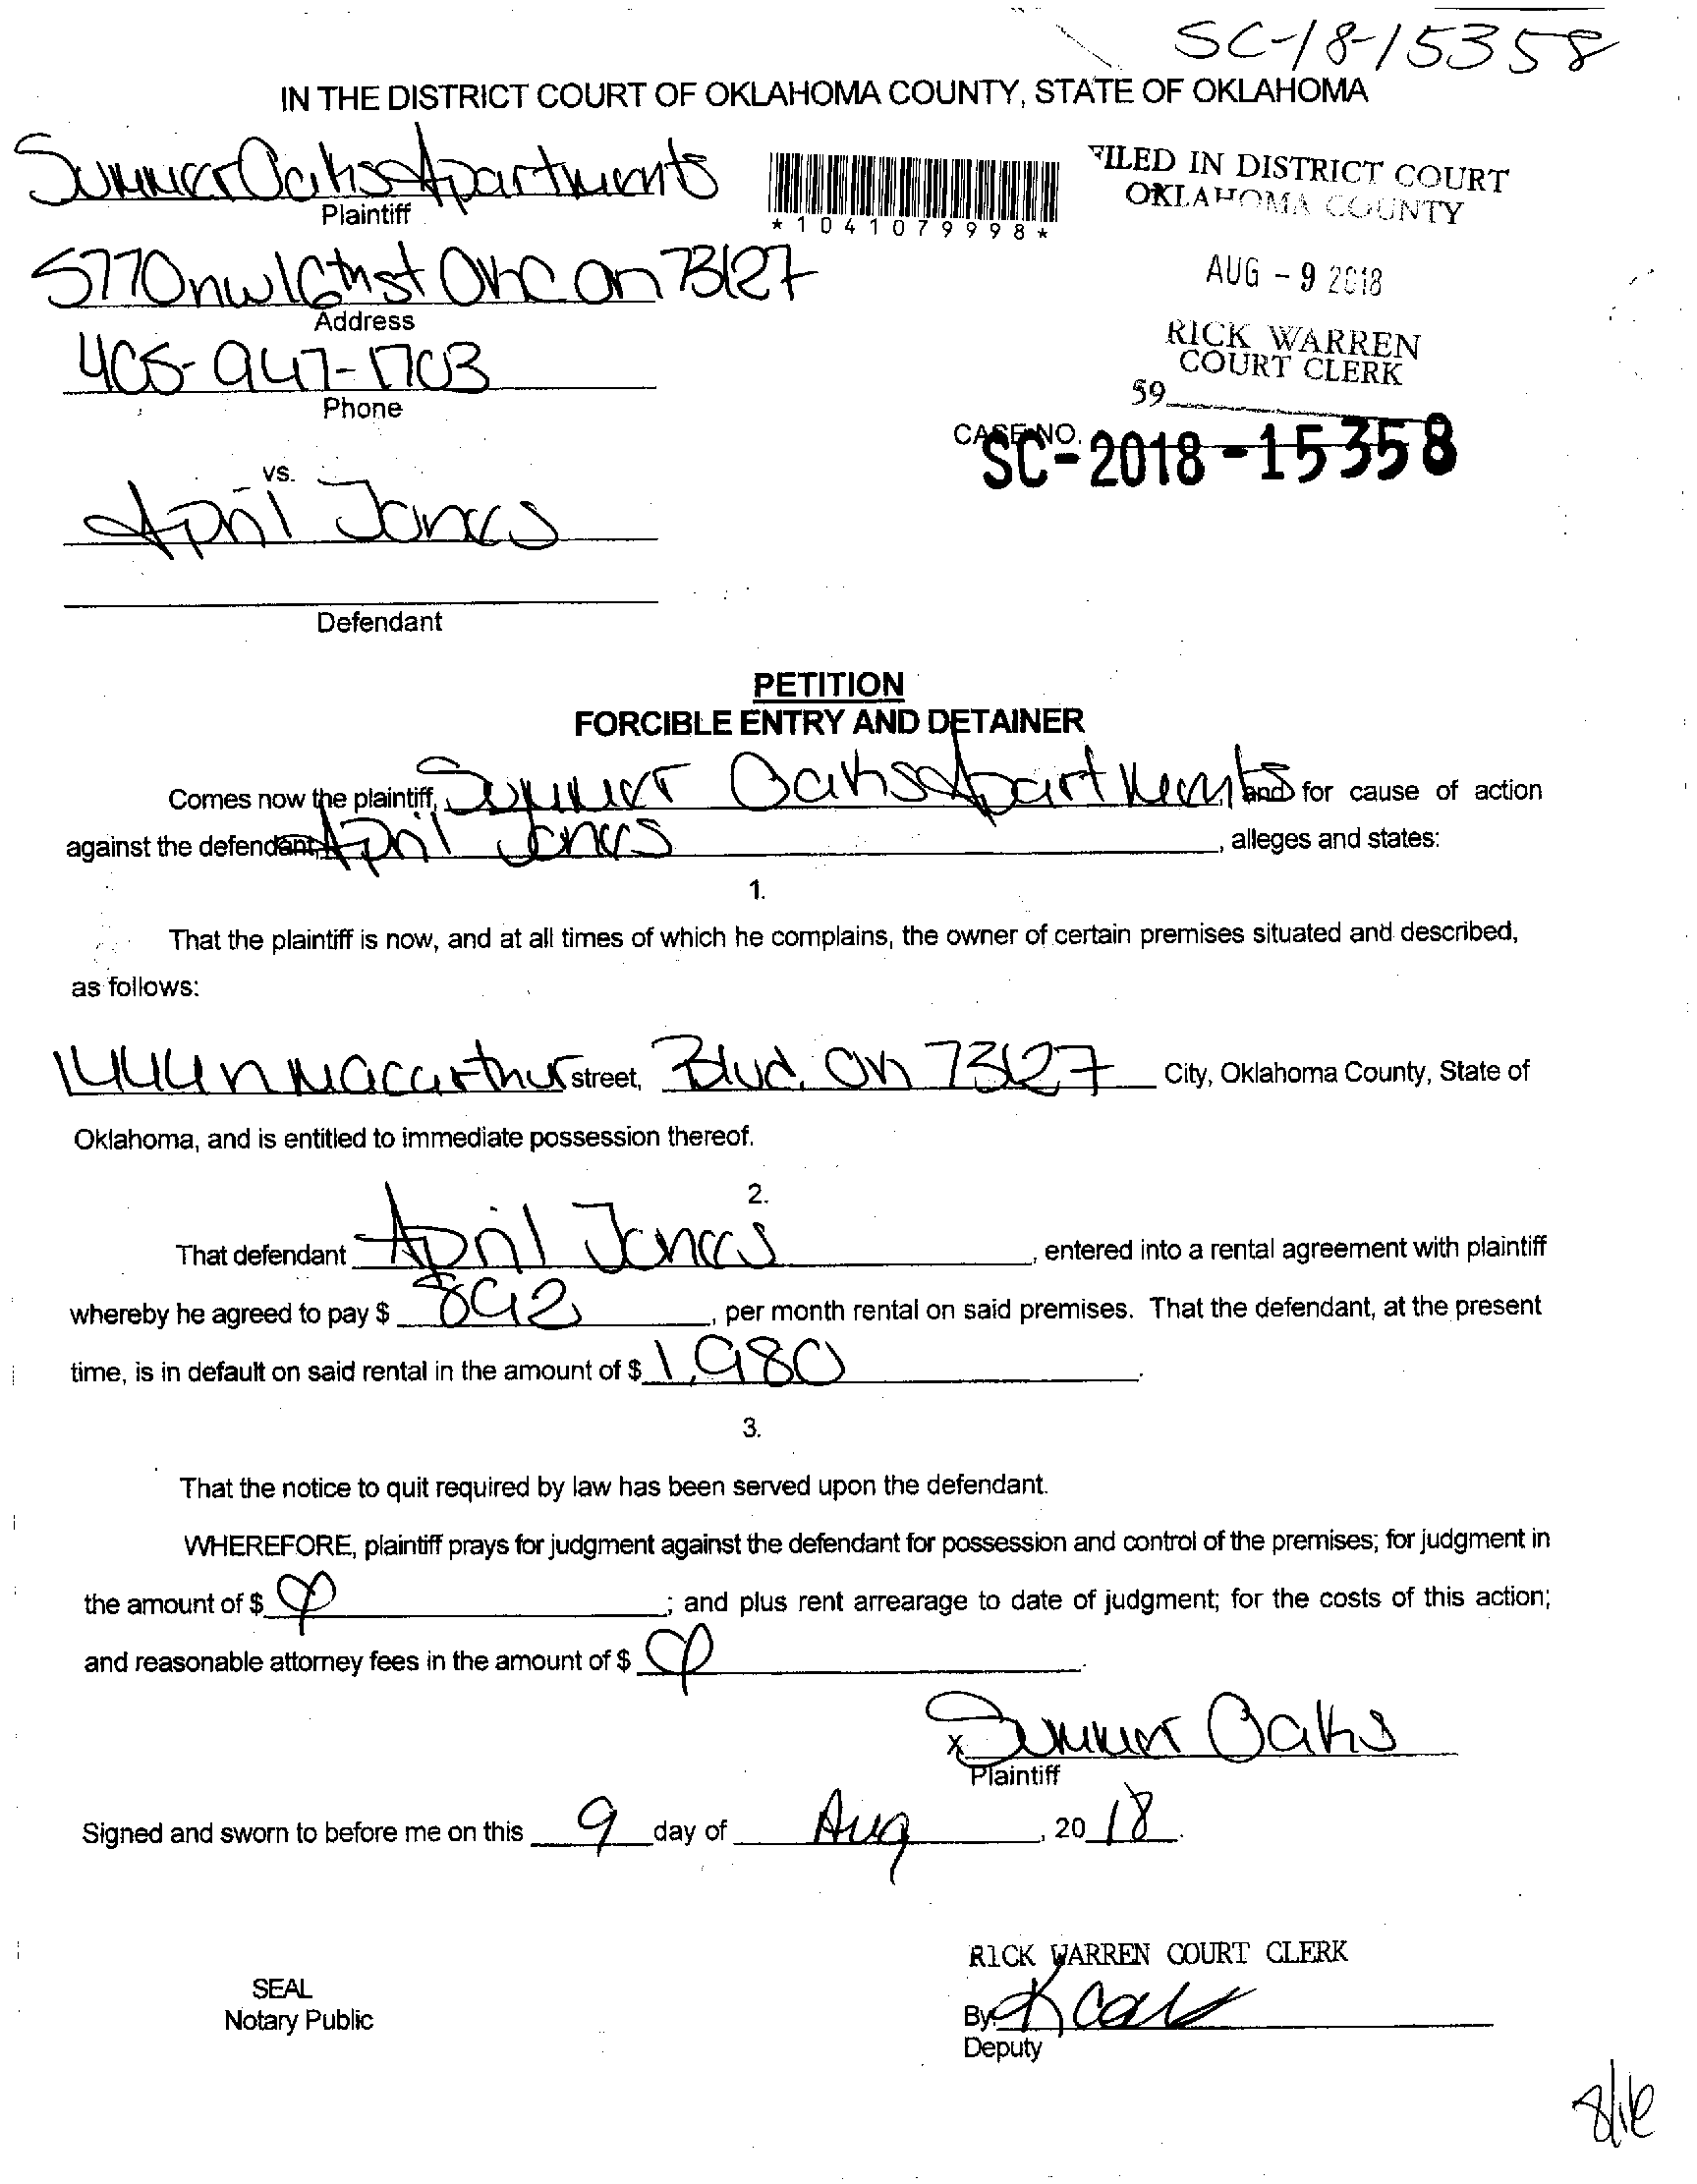 SC-18-15358
IN THE DISTRICT COURT OF OKLAHOMA COUNTY, STATE OF OKLAHOMA
Summer Oaks Apartments
Plaintiff
*1041079998*
FILED IN DISTRICT COURT
OKLAHOMA COUNTY
5770 nw 16th st OKC OK 73127
Address
AUG - 9 2018
405-947-1703
Phone
RICK WARREN
COURT CLERK
59
CASE NO.
SC-2018-15358
vs.
April Jones
Defendant
PETITION
FORCIBLE ENTRY AND DETAINER
Comes now the plaintiff, Summer Oaks Apartments and for cause of action
against the defendant, April Jones, alleges and states:
1.
That the plaintiff is now, and at all times of which he complains, the owner of certain premises situated and described,
as follows:
1444 n Macarthur street, Blvd. OK 73127 City, Oklahoma County, State of
Oklahoma, and is entitled to immediate possession thereof.
2.
That defendant April Jones, entered into a rental agreement with plaintiff
whereby he agreed to pay $ 892, per month rental on said premises. That the defendant, at the present
time, is in default on said rental in the amount of $ 1,980.
3.
That the notice to quit required by law has been served upon the defendant.
WHEREFORE, plaintiff prays for judgment against the defendant for possession and control of the premises; for judgment in
the amount of $ ; and plus rent arrearage to date of judgment; for the costs of this action;
and reasonable attorney fees in the amount of $ .
x Summer Oaks
Plaintiff
Signed and sworn to before me on this 9 day of Aug, 20 18.
RICK WARREN COURT CLERK
SEAL
Notary Public
By:
Deputy
8/16